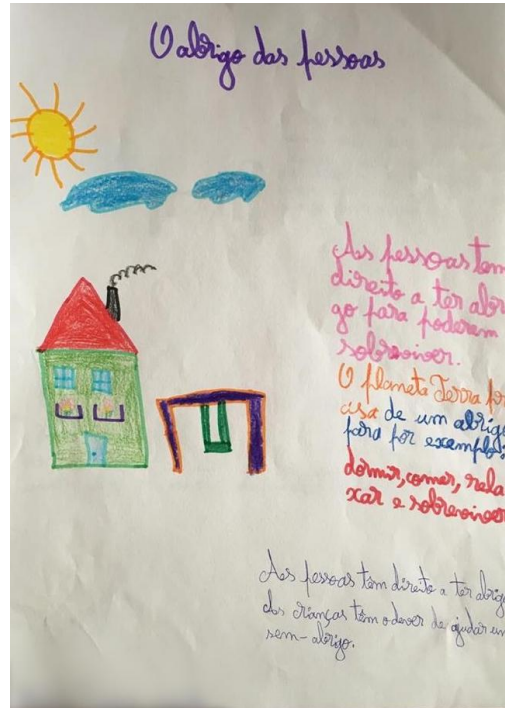 O abrigo das pessoas
As pessoas tem
direito a ter abri
go para poderem
sobreviver.
O planeta Terra
casa de um abrigo
para por exemplo:
dormir, comer, rela
xar e sobreviver
As pessoas têm direito a ter abrigo
As crianças têm o dever de ajudar um
sem-abrigo.